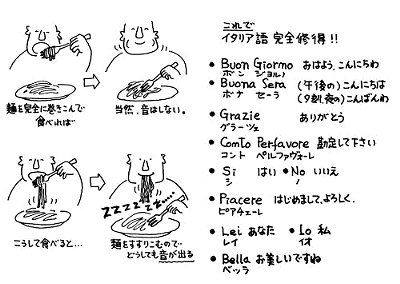 麺を完全に巻きこんで
食べれば
当然、音はしない。
こうして食べると…
ZZZZZZ....
麺をすすりこむので…
どうしても音が出る
これで
イタリア語 完全修得!!
• Buon Giormo おはよう、こんにちわ
ボン ジョルノ
• Buona Sera (午後の)こんにちは
ボナ セーラ (夕刻、夜の)こんばんわ
• Grazie ありがとう
グラーツェ
• Comto Perfavore 勘定して下さい
コント ペルファヴォーレ
• Si はい • No いいえ
シ ノ
• Piacere はじめまして、よろしく.
ピアチェーレ
• Lei あなた • Lo 私
レイ イオ
• Bella お美しいですね
ベッラ